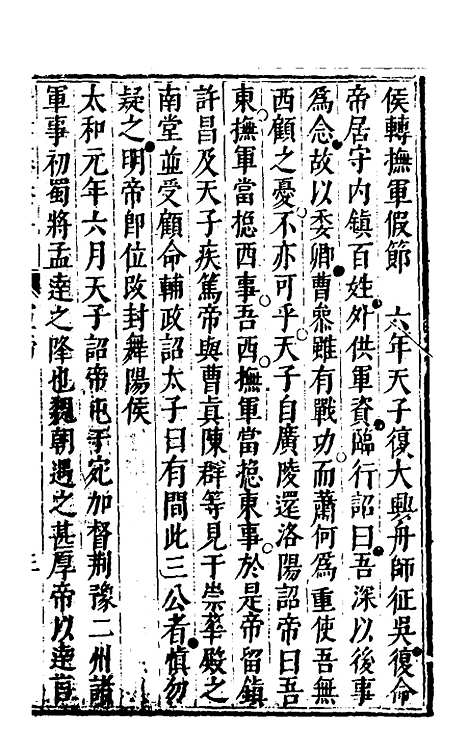 侯轉撫軍假節　六年天子復大興舟師征吳復命
帝居守内镇百姓外供軍資臨行詔曰吾深以後事
爲念故以委卿曹參雖有戰功而蕭何爲重使吾無
西顧之憂不亦可乎天子自廣陵還洛陽詔帝曰吾
東撫軍當摠西事吾西撫軍當摠東事於是帝留鎮
許昌及天子疾篤帝與曹真陳群等見于崇華殿之
南堂並受顧命輔政詔太子曰有間此三公者慎勿
疑之明帝卽位改封舞陽侯
太和元年六月天子詔帝屯于宛加督荆豫二州諸
軍事初蜀將孟達之降也魏朝遇之甚厚帝以達言